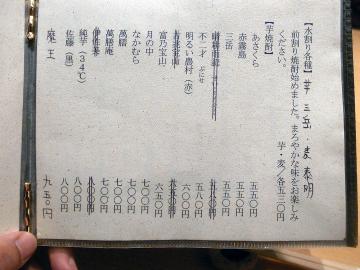 【水割り各種】芋 三岳・麦 泰明
前割り焼酎始めました。まろやかな味をお楽しみ
ください。 芋・麦／各五三〇円
【芋焼酎】
あさくら 五五〇円
赤霧島 五五〇円
三岳 五五〇円
晴耕雨読 五五〇円
不二才 ぶにせ 五八〇円
明るい農村（赤） 六〇〇円
吉兆宝山 六五〇円
富乃宝山 六五〇円
月の中 七〇〇円
なかむら 七〇〇円
萬膳 七〇〇円
萬膳庵 七〇〇円
伊佐美 八〇〇円
純芋（34℃） 八〇〇円
佐藤（黒） 八〇〇円
魔王 九五〇円